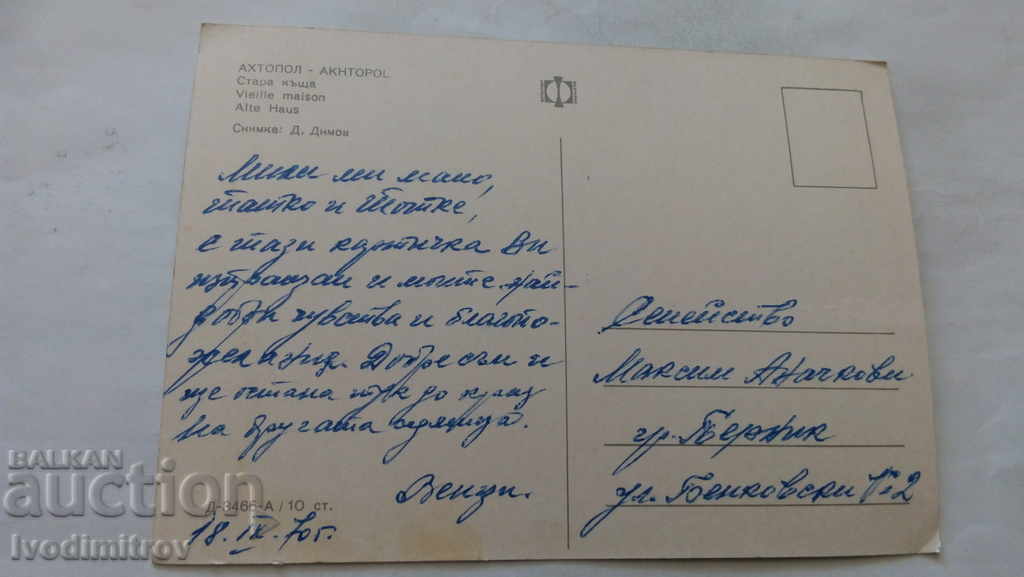 АХТОПОЛ - AKHTOPOL
Стара къща
Vieille maison
Alte Haus
Снимка: Д. Димов
Мили ми мамо,
татко и Тотке,
с тази картичка Ви
изпращам и моите най-
добри чувства и благопо-
желания. Добре съм и
ще остана тук до края
на другата седмица.
Венци.
Д-3466-А / 10 ст.
18.IX.70г.
Семейство
Максим Начкови
гр. Перник
ул. Бенковски № 2
BALKAN
auction
Ivodimitrov